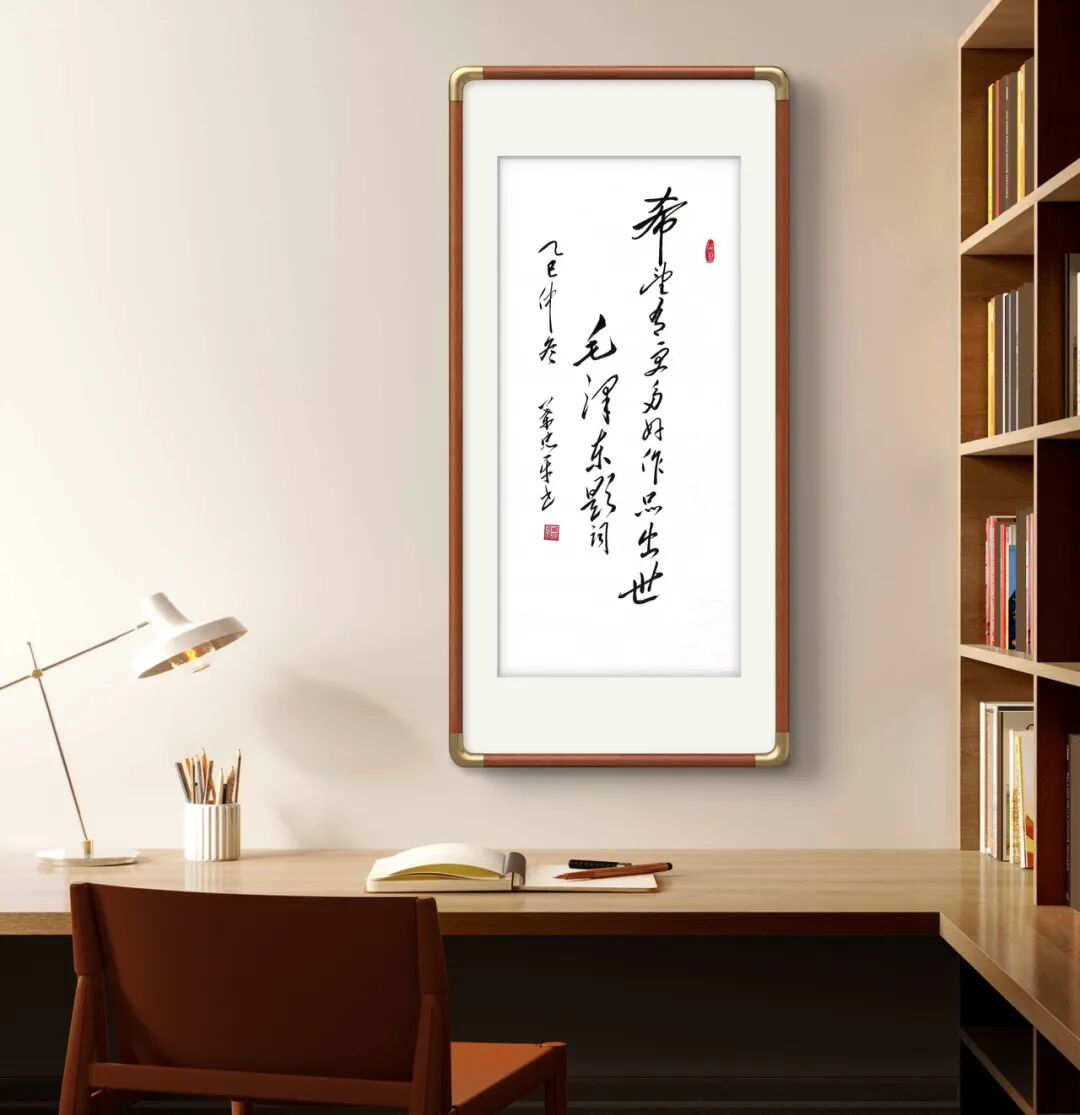 希望有更多好作品出世
毛泽东题词
乙巳仲冬 忠平书